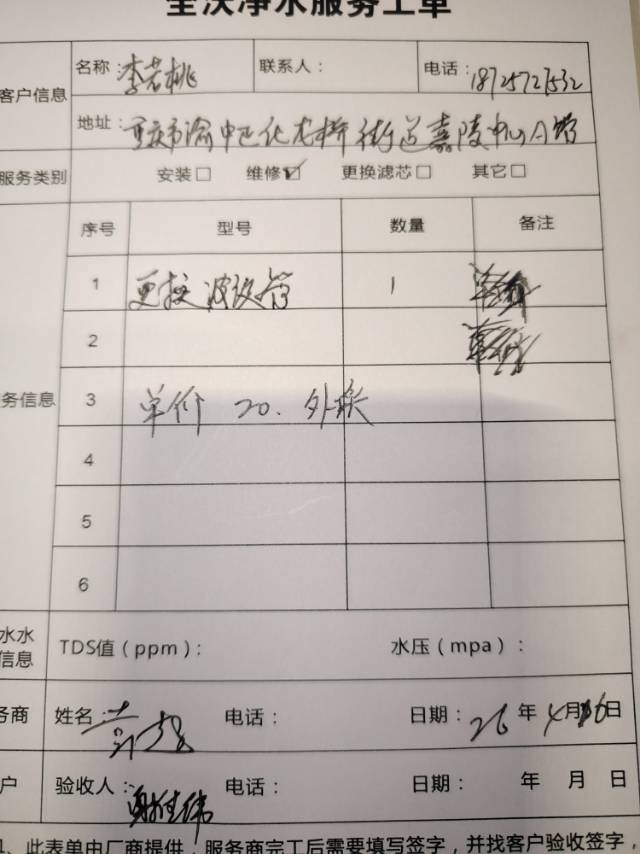 全沃净水服务工单
客户信息 名称 李若桃 联系人： 电话：18725727532
地址：重庆市渝中区化龙桥街道嘉陵中心A馆
服务类别 安装□ 维修☑ 更换滤芯□ 其它□
序号 型号 数量 备注
1 更换波纹管 1
2
务信息 3 单价 20. 外联
4
5
6
水水
信息 TDS值（ppm）： 水压（mpa）：
务商 姓名： 电话： 日期：26年4月16日
户 验收人： 电话： 日期： 年 月 日
1、此表单由厂商提供，服务商完工后需要填写签字，并找客户验收签字，